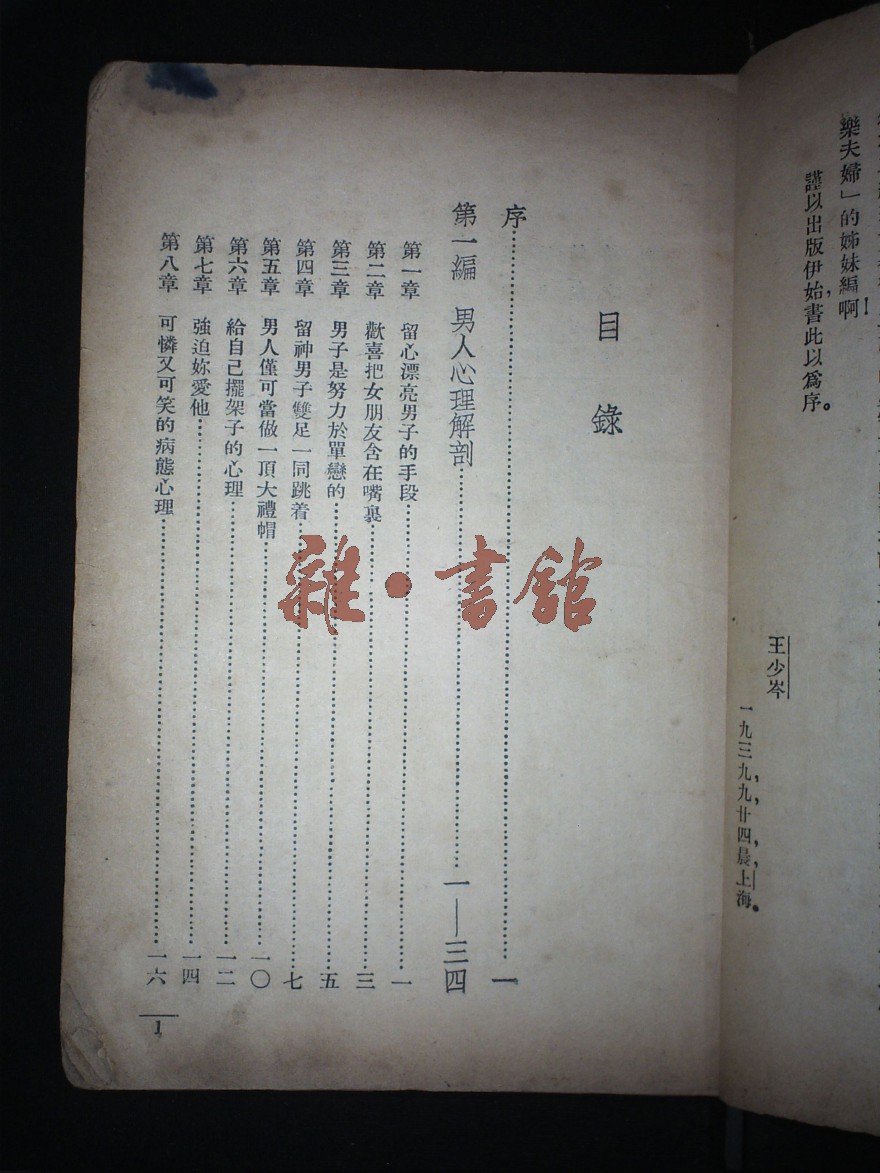 樂夫婦」的姊妹編啊!
謹以出版伊始,書此以爲序。
王少岑
一九三九,九,廿四,晨,上海。
目錄
序 一
第一編 男人心理解剖 一——三四
第一章 留心漂亮男子的手段 一
第二章 歡喜把女朋友含在嘴裏 三
第三章 男子是努力於單戀的 五
第四章 留神男子雙足一同跳着 七
第五章 男人僅可當做一頂大禮帽 一〇
第六章 給自己擺架子的心理 一二
第七章 強迫妳愛他 一四
第八章 可憐又可笑的病態心理 一六
1
雜·書館